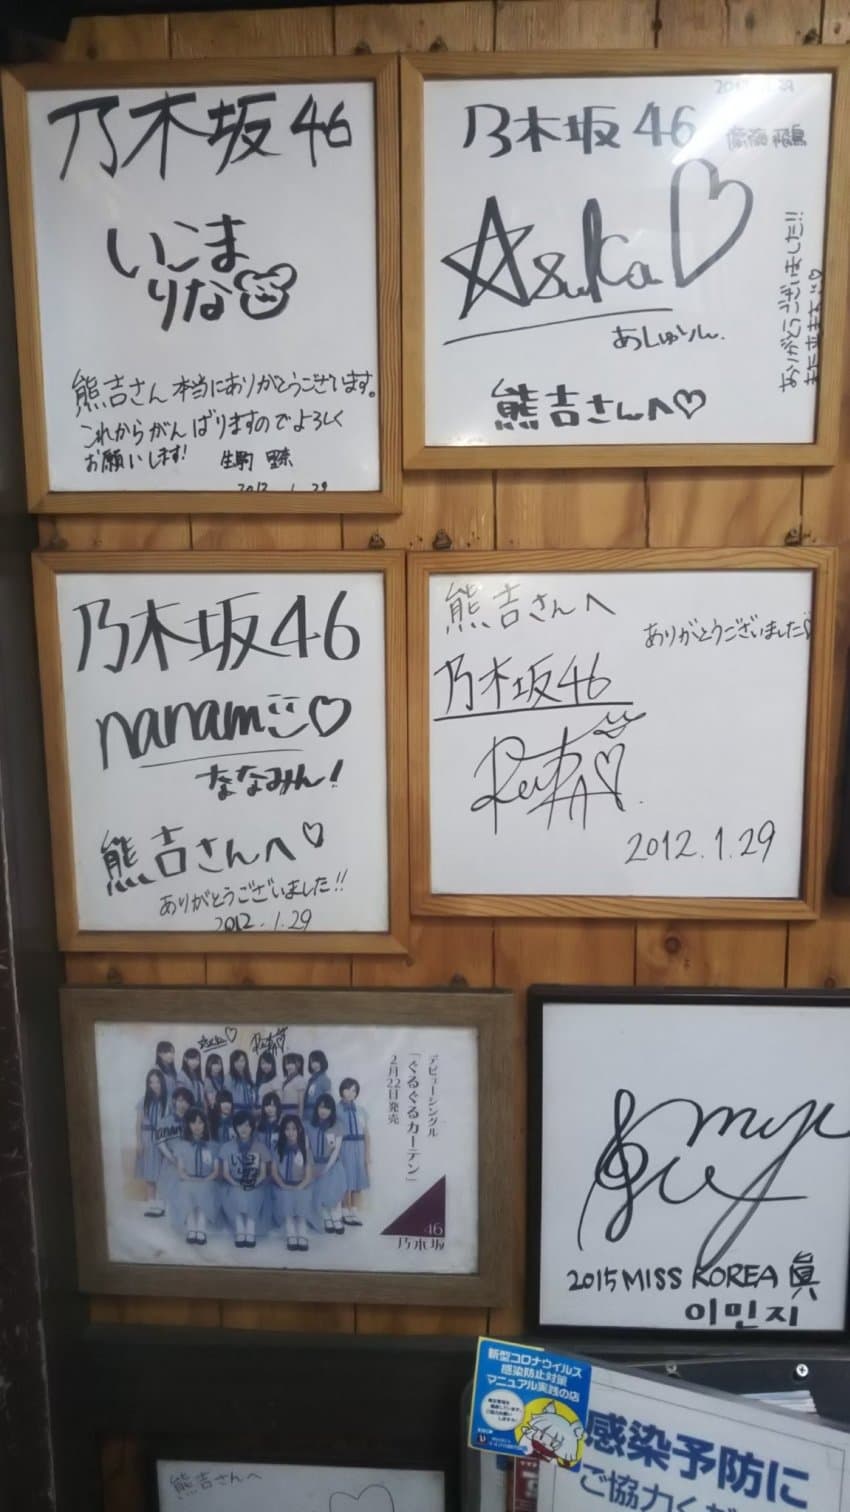 乃木坂46
いこま
りな
熊吉さん 本当にありがとうございます。
これからがんばりますのでよろしく
お願いします! 生駒 里奈
2012.1.29
乃木坂46
齋藤 飛鳥
Asuka
あしゅりん.
熊吉さんへ
ありがとうございました!!
また来ます
乃木坂46
nanami
ななみん!
熊吉さんへ
ありがとうございました!!
2012.1.29
熊吉さんへ
ありがとうございました
乃木坂46
2012.1.29
デビューシングル
「ぐるぐるカーテン」
2月22日発売
nanami
いこま
乃木坂
46
2015 MISS KOREA 眞
이민지
新型コロナウイルス
感染防止対策
マニュアル実践の店
感染予防に
ご協力くだ
熊吉さんへ